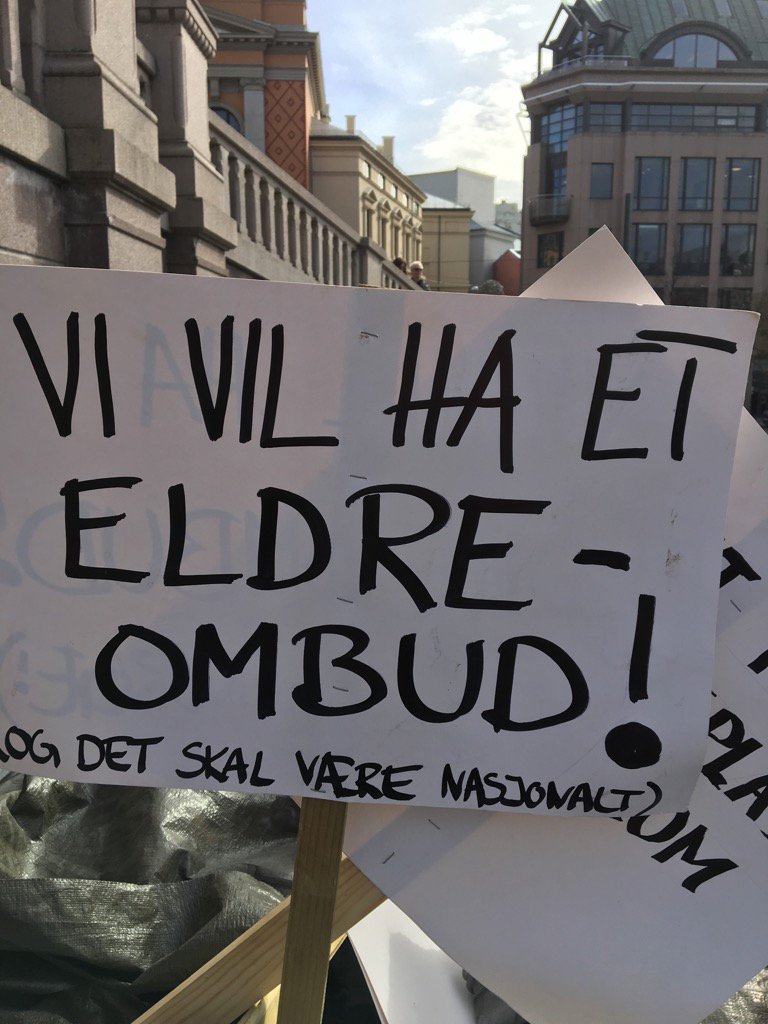 VI VIL HA ET
ELDRE-
OMBUD!
(OG DET SKAL VÆRE NASJONALT)